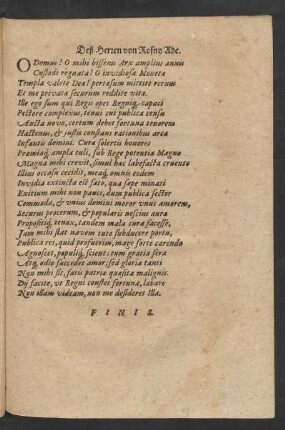 Deß Herren von Rosny Ade.
O Domus! O mihi bissenu Arx amplius annis
Custodi regnata! O invidiosa Moneta
Templa valete Dea! pertæsum mittite rerum
Et me privatæ securum reddite vitæ.
Ille ego sum qui Regis opes Regniq, capaci
Pectore complexus, tenui cui publica censu
Aucta novo, certum debet fortuna tenorem
Hactenus, & justis constans rationibus arca
Infantis domini. Curæ solertis honores
Præmiaq, ampla tuli, sub Rege potentia Magno
Magna mihi crevit, simul hac labefacta cruento
Illius occasu cecidit, meaq, omnis eodem
Invidia extincta est fato, qua sæpe minati
Exitium mihi non pauci, dum publica sector
Commoda, & unius domini moror unus amorem,
Securus procerum, & popularis nescius auræ
Propositiq, tenax, tandem mala cura facesse,
Jam mihi stat navem tuto subducere portu,
Publica res, quid profuerim, mage forte carendo
Agnoscet, populiq, scient: tum gratia sera
Atq, odio succedet amor; sed gloria tanti
Non mihi sit, fatis patriæ quæsita malignis.
Dij facite, ut Regni constet fortuna, labare
Non illam videam, non me desideret Illa.
FINIS.